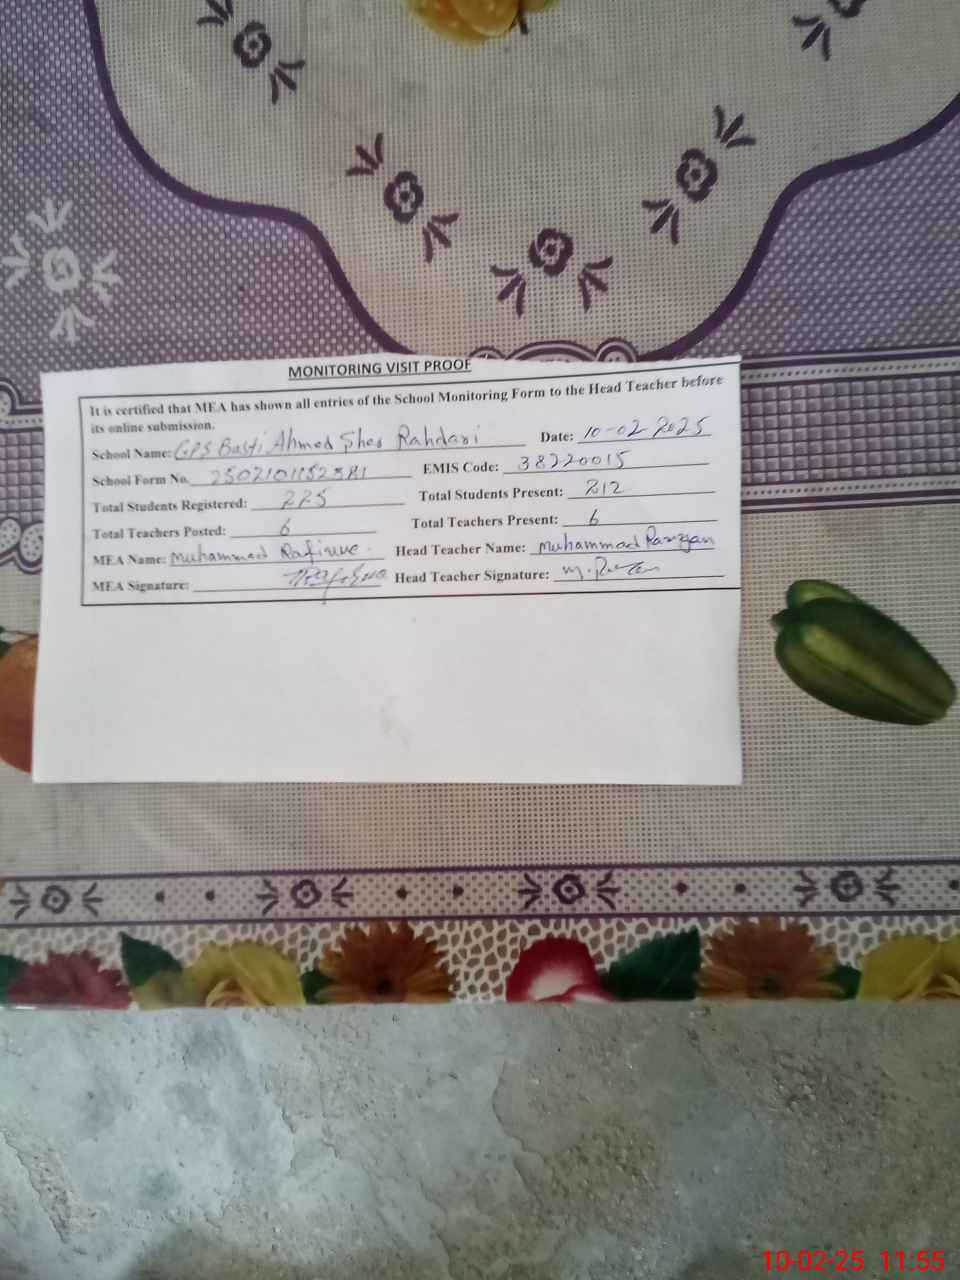 MONITORING VISIT PROOF
It is certified that MEA has shown all entries of the School Monitoring Form to the Head Teacher before
its online submission.
School Name: GPS Basti Ahmed Sher Rahdari Date: 10-02-2025
School Form No. EMIS Code: 38220015
Total Students Registered: 225 Total Students Present: 212
Total Teachers Posted: 6 Total Teachers Present: 6
MEA Name: Muhammad Rafique Head Teacher Name: Muhammad Ramzan
MEA Signature: Head Teacher Signature: M. Ramzan
10-02-25 11:55